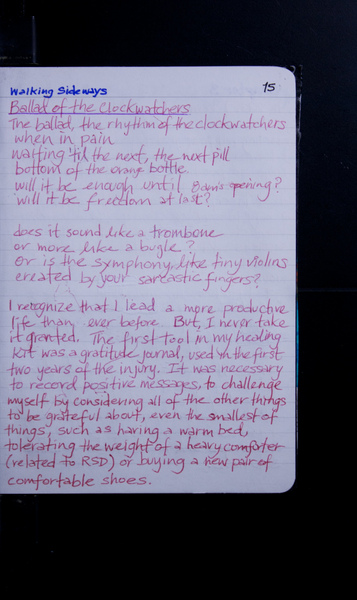 Walking Sideways
15
Ballad of the Clockwatchers
The ballad, the rhythm of the clockwatchers
when in pain
waiting 'til the next, the next pill
bottom of the orange bottle.
will it be enough until 8am's opening?
will it be freedom at last?
does it sound like a trombone
or more like a bugle?
Or is the symphony, like tiny violins
created by your sarcastic fingers?
I recognize that I lead a more productive
life than ever before. But, I never take
it granted. The first tool in my healing
kit was a gratitude journal, used in the first
two years of the injury. It was necessary
to record positive messages, to challenge
myself by considering all of the other things
to be grateful about, even the smallest of
things, such as having a warm bed,
tolerating the weight of a heavy comforter
(related to RSD) or buying a new pair of
comfortable shoes.